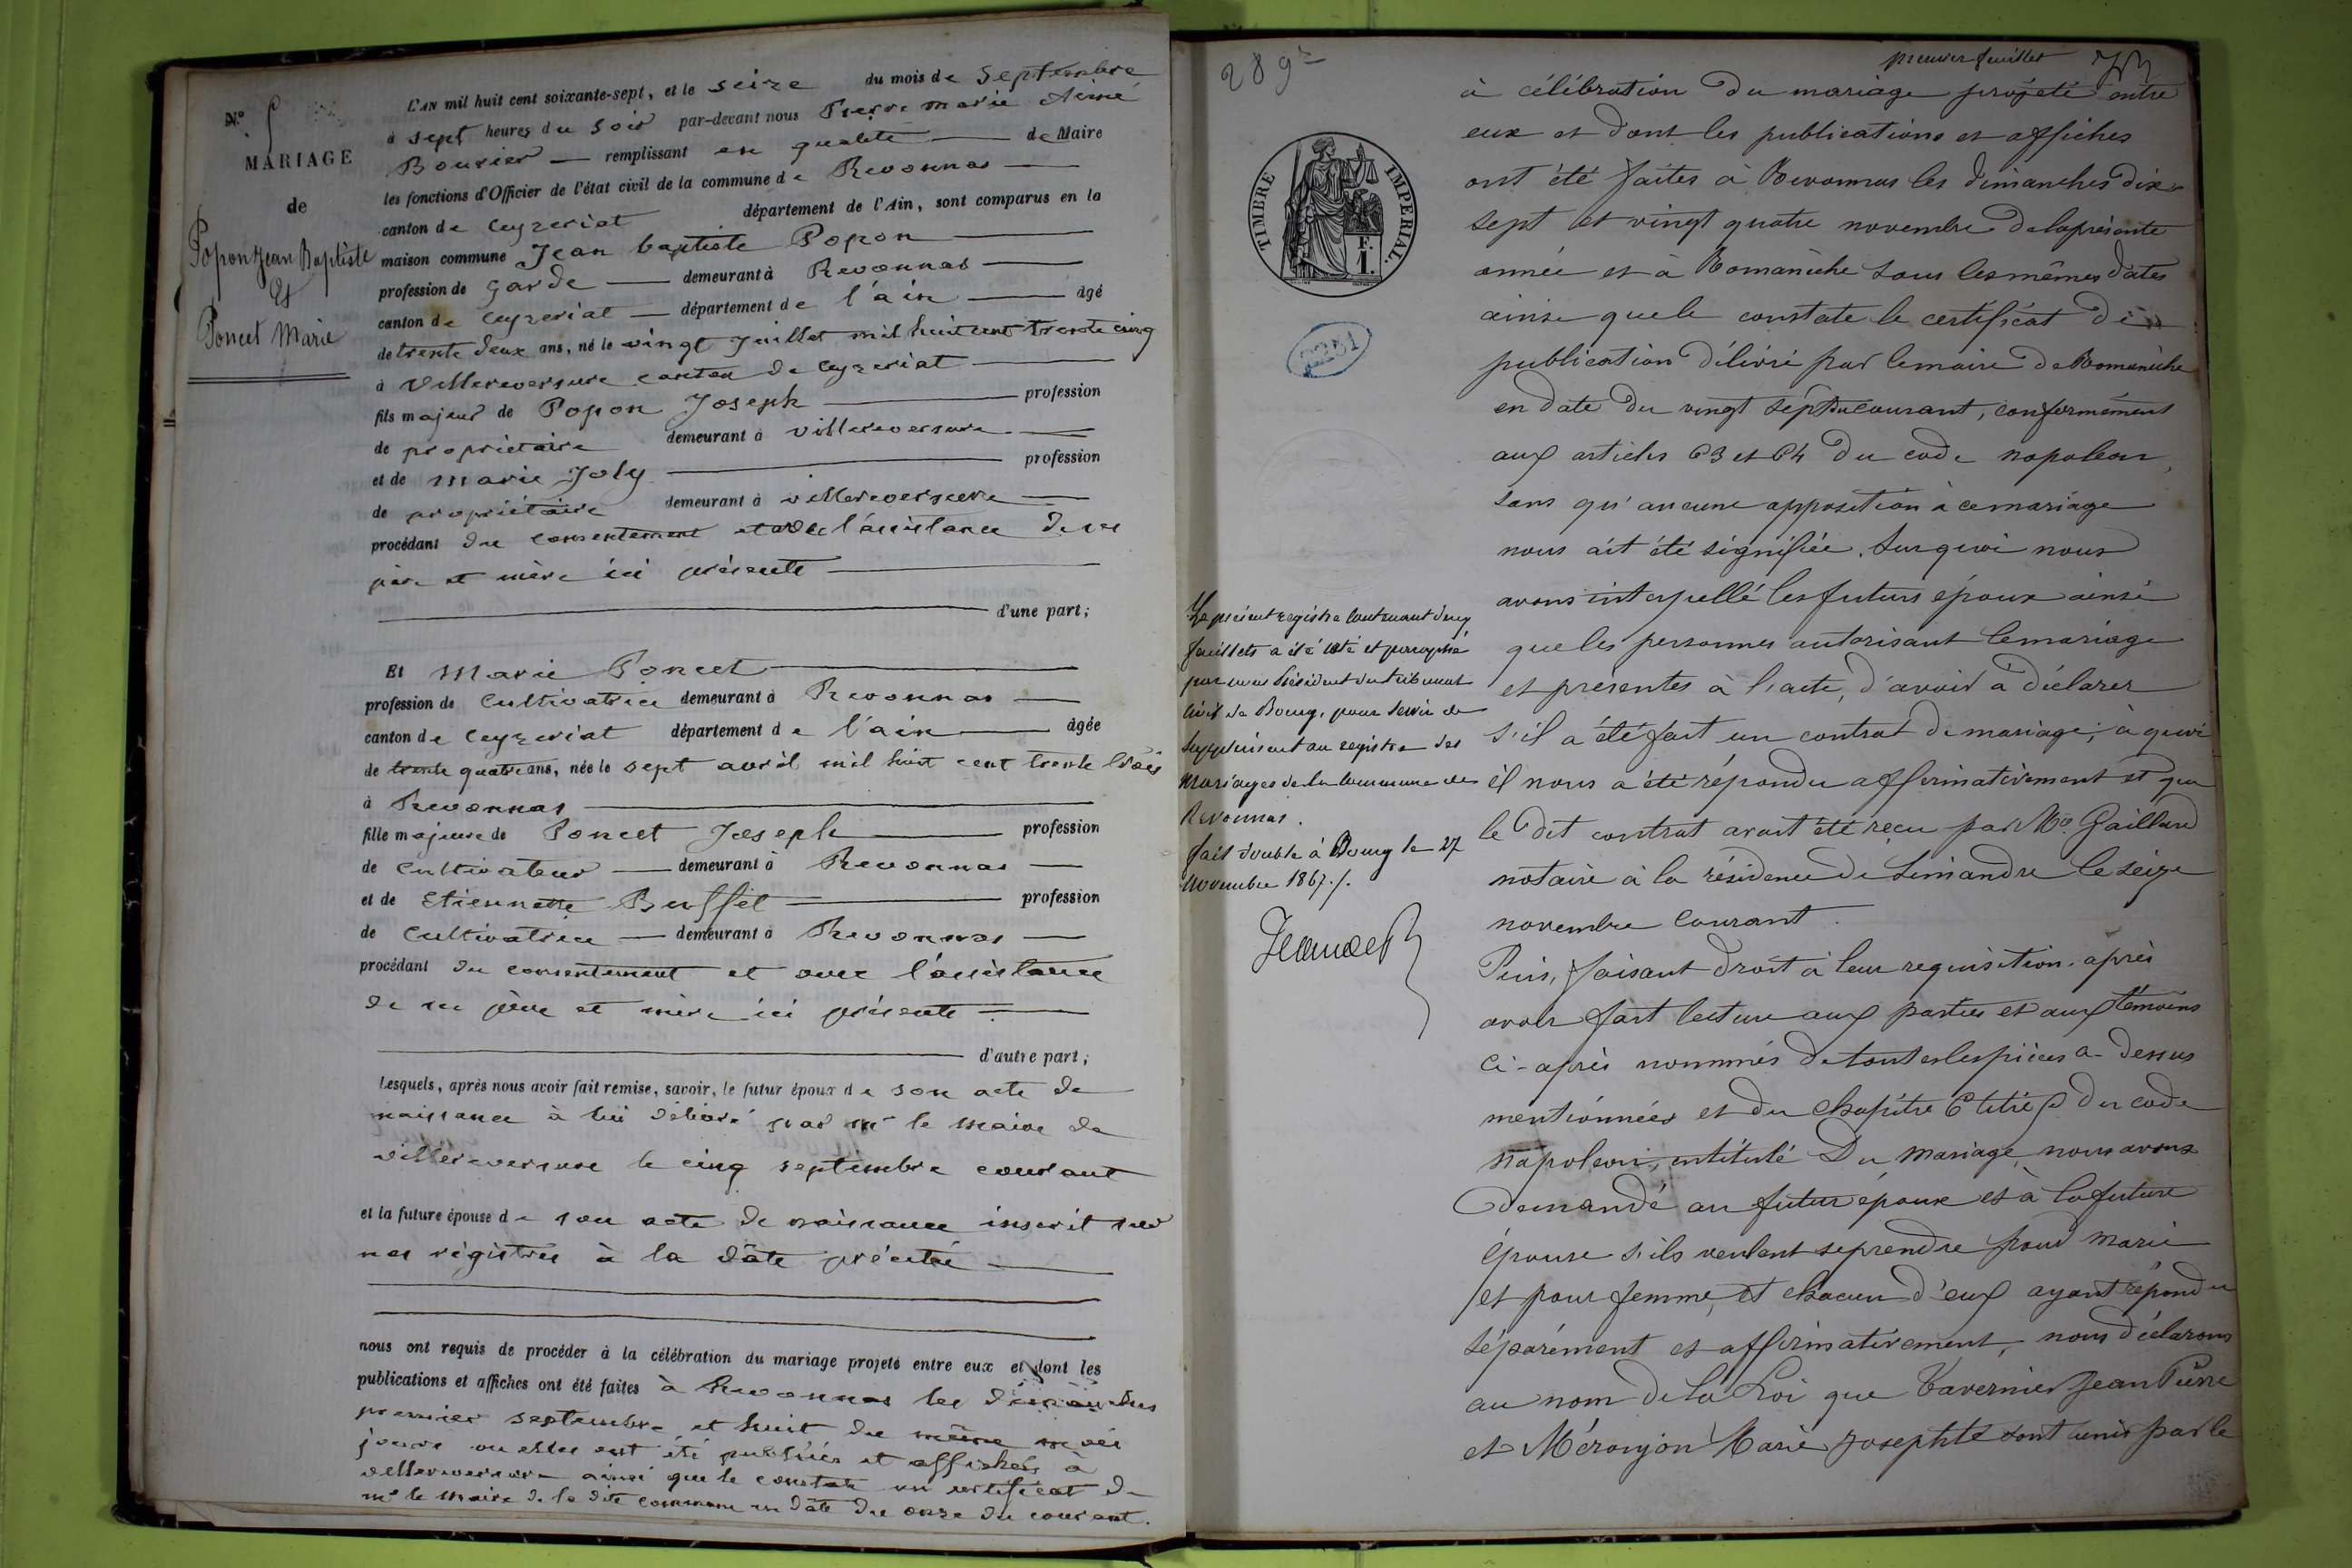 N.° 5
MARIAGE
de
Popon Jean Baptiste
Et
Poncet Marie
L'AN mil huit cent soixante-sept, et le seize du mois de Septembre
à sept heures du soir par-devant nous Pierre marie Aimé
Bourier remplissant en qualité de Maire
les fonctions d'Officier de l'état civil de la commune de Revonnas
canton de Ceyzeriat département de l'Ain, sont comparus en la
maison commune Jean baptiste Popon
profession de garde demeurant à Revonnas
canton de Ceyzeriat département de l'ain âgé
de trente deux ans, né le vingt Juillet mil huit cent trente cinq
à Villereversure canton de Ceyzeriat
fils majeur de Popon Joseph profession
de propriétaire demeurant à Villereversure
et de Marie Joly profession
de propriétaire demeurant à villereversure
procédant du consentement et avec l'assistance de ses
père et mère ici présents
d'une part;
Et Marie Poncet
profession de Cultivatrice demeurant à Revonnas
canton de Ceyzeriat département de l'ain âgée
de trente quatre ans, née le sept avril mil huit cent trente trois
à Revonnas
fille majeure de Poncet Joseph profession
de Cultivateur demeurant à Revonnas
et de Etiennette Buffet profession
de Cultivatrice demeurant à Revonnas
procédant du consentement et avec l'assistance
de ses père et mère ici présents
d'autre part;
Lesquels, après nous avoir fait remise, savoir, le futur époux de son acte de
naissance à lui délivré par mr le maire de
villereversure le cinq septembre courant
et la future épouse de son acte de naissance inscrit sur
nos régistres à la dâte précitée
nous ont requis de procéder à la célébration du mariage projeté entre eux et dont les
publications et affiches ont été faites à Revonnas les dimanches
premier septembre et huit du même mois
jours où elles ont été publiées et affichées à
villereversure ainsi que le constate un certificat de
mr le Maire de la dite commune en dâte du onze du courant.
289
premier feuillet
TIMBRE IMPERIAL.
F. 1.
2251
à célébration du mariage projeté entre
eux et dont les publications et affiches
ont été faites à Revonnas les dimanches dix
sept et vingt quatre novembre de la présente
année et à Romanèche sous les mêmes dates
ainsi que le constate le certificat de
publication délivré par le maire de Romanèche
en date du vingt sept du courant, conformément
aux articles 63 et 64 du code napoléon,
sans qu'aucune opposition à ce mariage
nous ait été signifiée. Sur quoi nous
avons interpellé les futurs époux ainsi
que les personnes autorisant le mariage
et présentes à l'acte, d'avoir à déclarer
s'il a été fait un contrat de mariage, à quoi
il nous a été répondu affirmativement et que
le dit contrat avait été reçu par Me Gaillard
notaire à la résidence de Simandre le seize
novembre courant.
Puis, faisant droit à leur requisition, après
avoir fait lecture aux parties et aux témoins
ci-après nommés de toutes les pièces a-dessus
mentionnées et du chapitre 6 titre 5 du code
napoléon, intitulé Du Mariage, nous avons
demandé au futur époux et à la future
épouse s'ils veulent se prendre pour mari
et pour femme, et chacun d'eux ayant répondu
séparément et affirmativement, nous déclarons
au nom de la Loi que Tavernier Jean Pierre
et Méronjon Marie Josephte sont unis par le
Le présent registre contenant deux
feuillets a été coté et paraphé
par nous Président du tribunal
civil de Bourg, pour servir de
supplément au registre des
mariages de la commune de
Revonnas.
fait double à Bourg le 27
novembre 1867./.